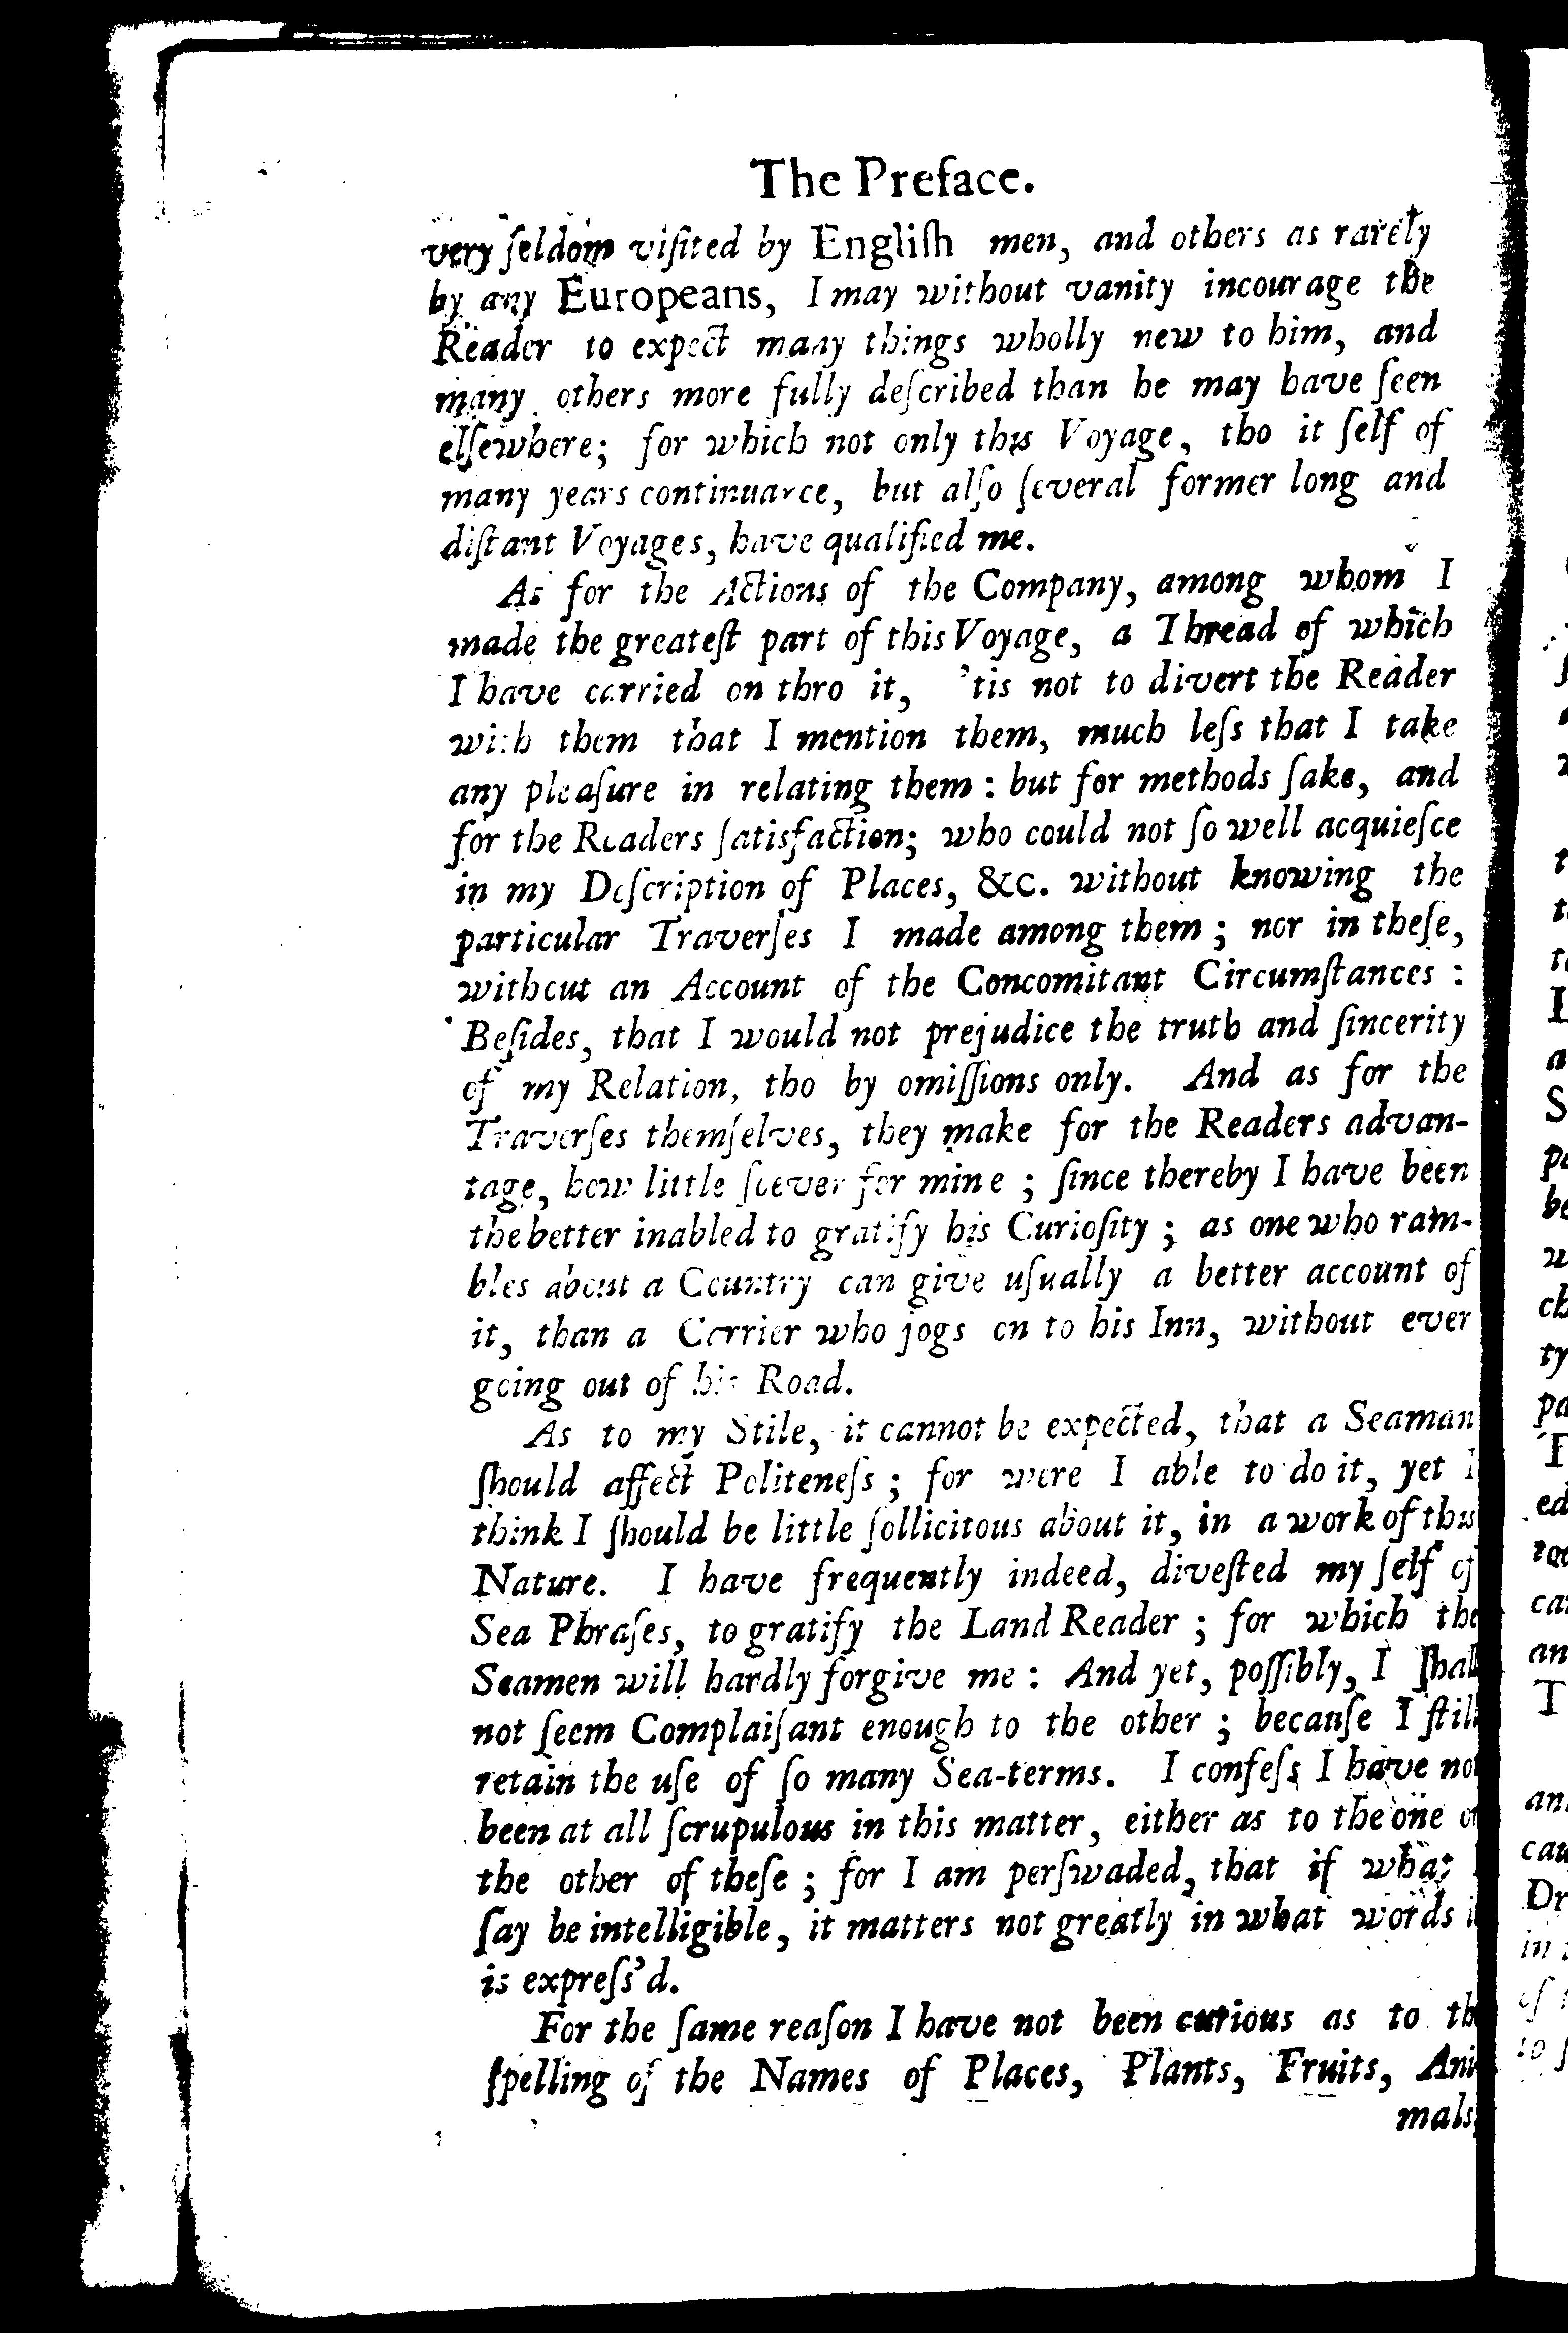 The Preface.
very ſeldom viſited by Engliſh men, and others as rarely
by any Europeans, I may without vanity incourage the
Reader to expect many things wholly new to him, and
many others more fully deſcribed than he may have ſeen
elſewhere; for which not only this Voyage, tho it ſelf of
many years continuance, but alſo ſeveral former long and
diſtant Voyages, have qualified me.
As for the Actions of the Company, among whom I
made the greateſt part of this Voyage, a Thread of which
I have carried on thro it, 'tis not to divert the Reader
with them that I mention them, much leſs that I take
any pleaſure in relating them: but for methods ſake, and
for the Readers ſatisfaction; who could not ſo well acquieſce
in my Deſcription of Places, &c. without knowing the
particular Traverſes I made among them; nor in theſe,
without an Account of the Concomitant Circumſtances:
Beſides, that I would not prejudice the truth and ſincerity
of my Relation, tho by omiſſions only. And as for the
Traverſes themſelves, they make for the Readers advan-
tage, how little ſoever for mine; ſince thereby I have been
the better inabled to gratify his Curioſity; as one who ram-
bles about a Country can give uſually a better account of
it, than a Carrier who jogs on to his Inn, without ever
going out of his Road.
As to my Stile, it cannot be expected, that a Seaman
ſhould affect Politeneſs; for were I able to do it, yet I
think I ſhould be little ſollicitous about it, in a work of this
Nature. I have frequently indeed, diveſted my ſelf of
Sea Phraſes, to gratify the Land Reader; for which the
Seamen will hardly forgive me: And yet, poſſibly, I ſhall
not ſeem Complaiſant enough to the other; becauſe I ſtill
retain the uſe of ſo many Sea-terms. I confeſs I have not
been at all ſcrupulous in this matter, either as to the one or
the other of theſe; for I am perſwaded, that if what I
ſay be intelligible, it matters not greatly in what words it
is expreſs'd.
For the ſame reaſon I have not been curious as to the
ſpelling of the Names of Places, Plants, Fruits, Ani-
mals,